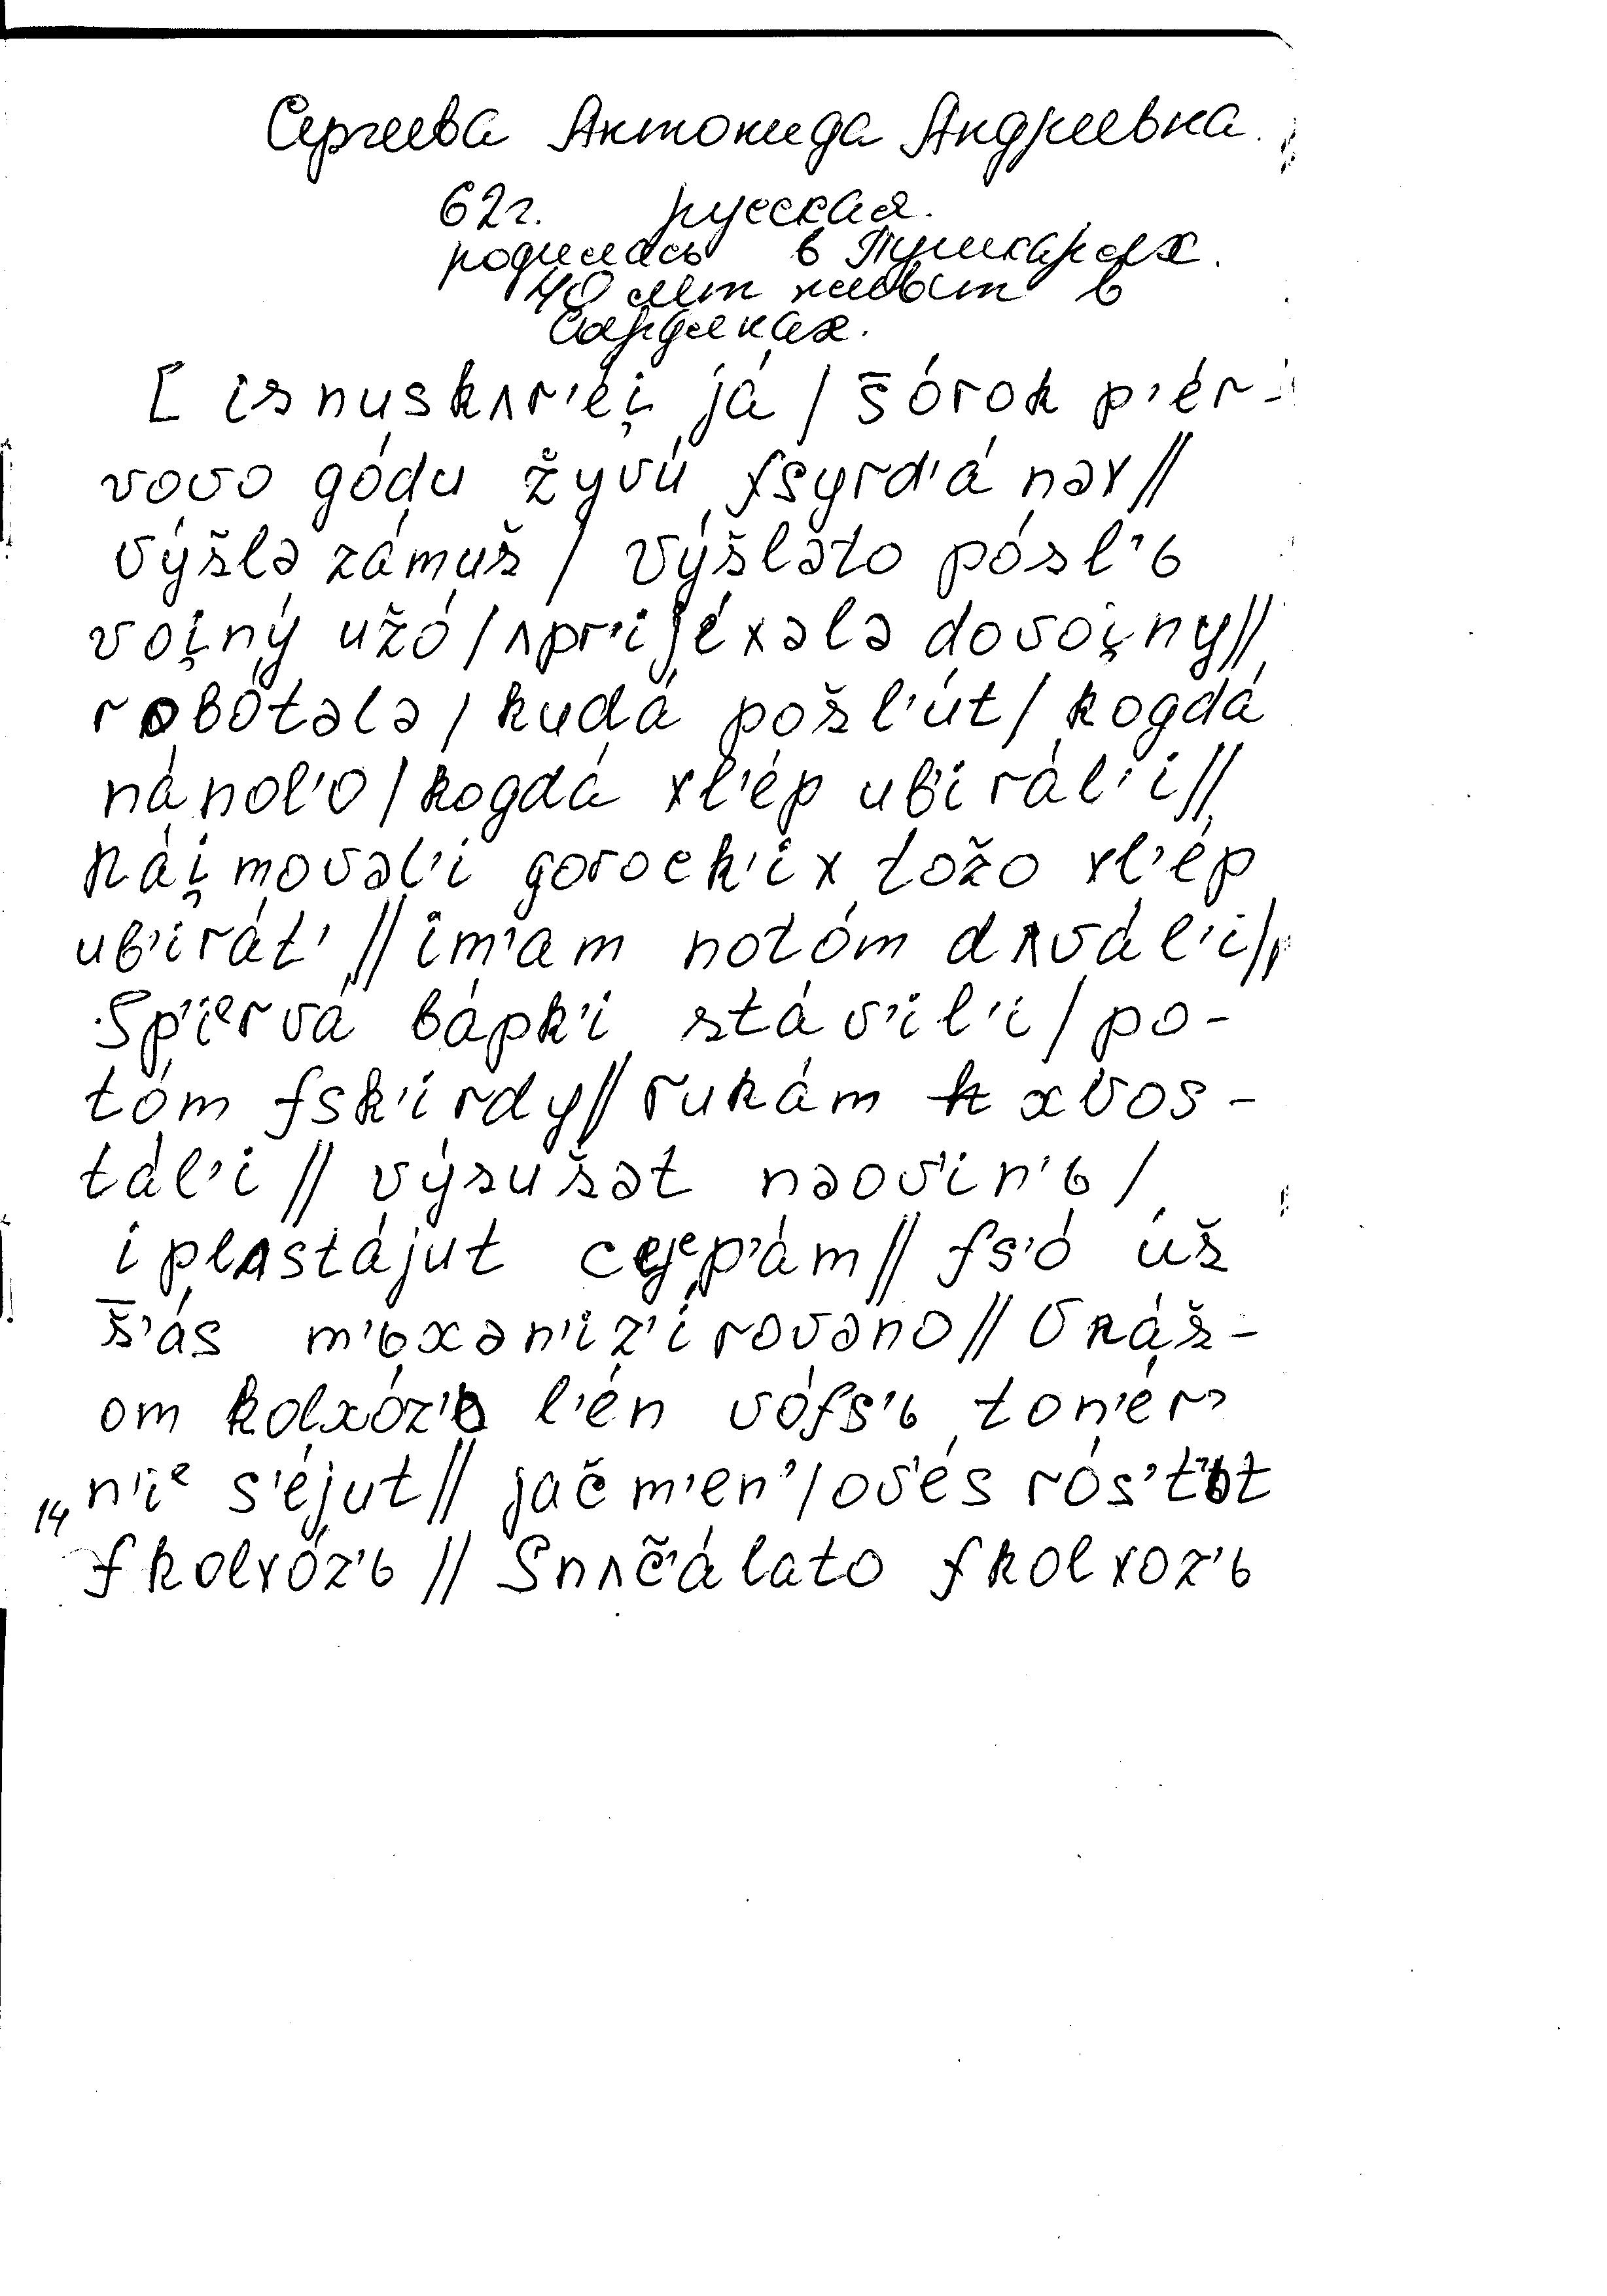 Сергеева Антонида Андреевна.
62г. русская.
родилась в Пушкарях.
40 лет живёт в
Сардынах.
[ isnuskʌr'éi̯ já / s̄órok p'ér-
vovo gódu žyvú fsyrd'ánəx //
výšlə zámuš / výšləto pósl'ь
voi̯ný užó / ʌpr'ijéxələ dovoi̯ny //
robótələ / kudá pošl'út / kogdá
nánol'o / kogdá xl'ép ub'irál'i //
Nái̯movəl'i gorock'ix tožo xl'ép
ub'irát' // im'am notóm dʌvál'i //
Sp'iᵉrvá bápk'i stáv'il'i / po-
tóm fsk'írdy // rukám xvos-
tál'i // výsušət nəov'in'ь /
i plʌstájut ceᵉp'ám // fs'ó úš
š̄'ás m'ьxən'iz'írovəno // Vnáš-
om kolxóz'ь l'én vófs'ь ton'ér'
n'iᵉ s'éjut // jačm'en' / ov'és rós't'ьt
14
fkolxóz'ь // Snʌč'álato fkolxoz'ь